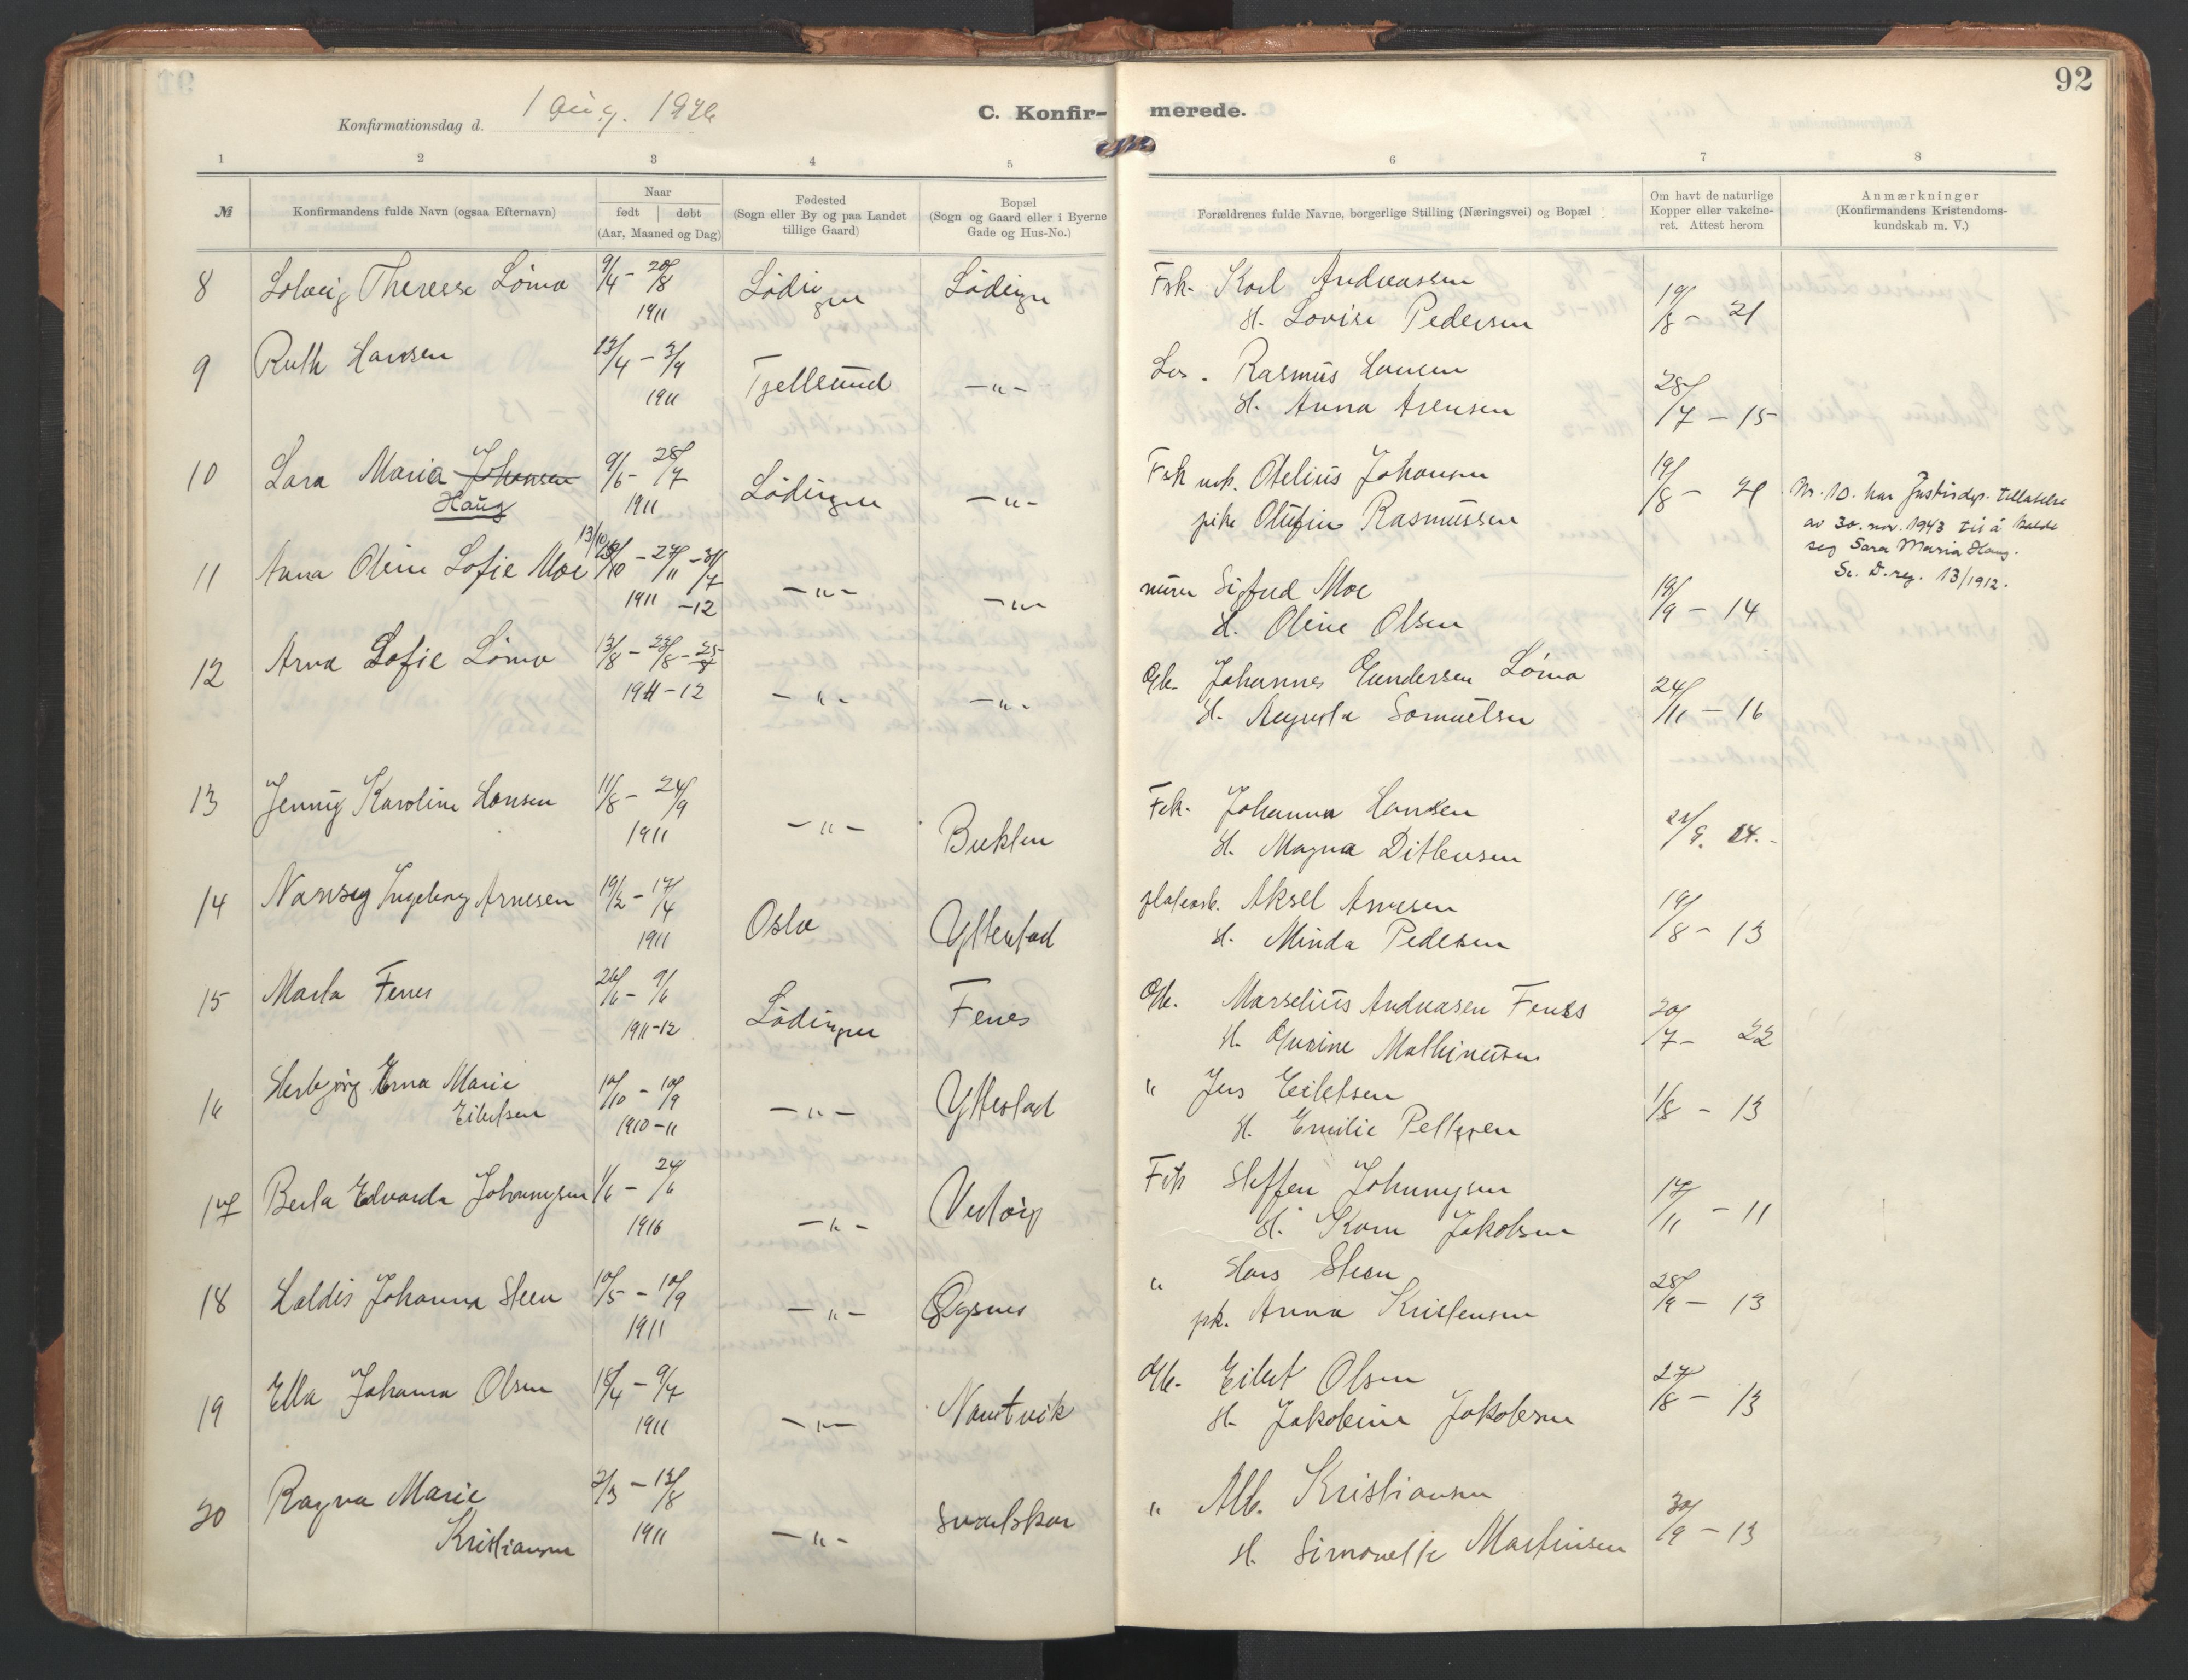 92
Konfirmationsdag d. 1 Aug. 1926
C. Konfir- merede.
1 2 3 4 5 6 7 8
№
Konfirmandens fulde Navn (ogsaa Efternavn)
Naar
født | døbt
(Aar, Maaned og Dag)
Fødested
(Sogn eller By og paa Landet
tillige Gaard)
Bopæl
(Sogn og Gaard eller i Byerne
Gade og Hus-No.)
Forældrenes fulde Navne, borgerlige Stilling (Næringsvei) og Bopæl
Om havt de naturlige
Kopper eller vakcine-
ret. Attest herom
Anmærkninger
(Konfirmandens Kristendoms-
kundskab m. V.)
8 Solveig Therese Lømo 9/4 - 20/8 Lødingen Lødingen Fsk. Karl Andreassen 19/8 - 21
1911 H. Lovise Pedersen
9 Ruth Hansen 13/4 - 3/9 Tjellsund -"- Rasmus Hansen 28/7 - 15
1911 H. Anna Arensen
10 Sara Maria Johansen 9/6 - 28/7 Lødingen -"- Fsk uek. Otelius Johansen 19/8 - 21
Haug 1911 pike Olufin Rasmussen
Nr. 10. har Justisdep. tillatelse
av 30. nov. 1943 til å kalde
seg Sara Maria Haug.
Se D. reg. 13/1912.
11 Anna Oline Sofie Moe 13/10 - 27/11 - 31/7 -"- -"- murer Sigfred Moe 19/9 - 14
1911 -12 H. Oline Olsen
12 Arna Sofie Lømo 13/8 - 28/8 - 25/7 -"- -"- Gbr. Johannes Gundersen Lømo 24/11 - 16
1911-12 H. Augusta Samuelsen
13 Jenny Karoline Hansen 11/8 - 24/9 -"- Buklen Fsk. Johannes Hansen 21/9. 14.
1911 H. Magna Ditlevsen
14 Nanseg Ingeborg Arnesen 19/2 - 17/4 Oslo Ytterstad Aksel Arnesen 19/8 - 13
1911 H. Minda Pedersen
15 Marta Fenes 26/6 - 9/6 Lødingen Fenes Gbr. Marselius Andreasen Fenes 20/7 - 22
1911-12 H. Gurine Mathinussen
16 Herbjørg Erna Marie 10/10 - 10/9 -"- Ytterstad " Jens Eilertsen 1/8 - 13
Eilertsen 1910-11 H. Emilie Pettersen
17 Berta Edvarda Johannesen 1/6 - 24/6 -"- Fsk Steffen Johannesen 17/11 - 11
1910 H. Karn Jakobsen
18 Haldis Johanna Steen 10/5 - 10/9 -"- Øgsnes " Hans Steen 28/9 - 13
1911 pk. Anna Kristensen
19 Ella Johanna Olsen 18/4 - 9/7 -"- Nautvik Gbr. Eilert Olsen 27/8 - 13
1911 H. Jakobine Jakobsen
20 Ragna Marie 2/3 - 13/8 -"- Svartskar " Alb. Kristiansen 30/9 - 13
Kristiansen 1911 H. Simonette Martinsen